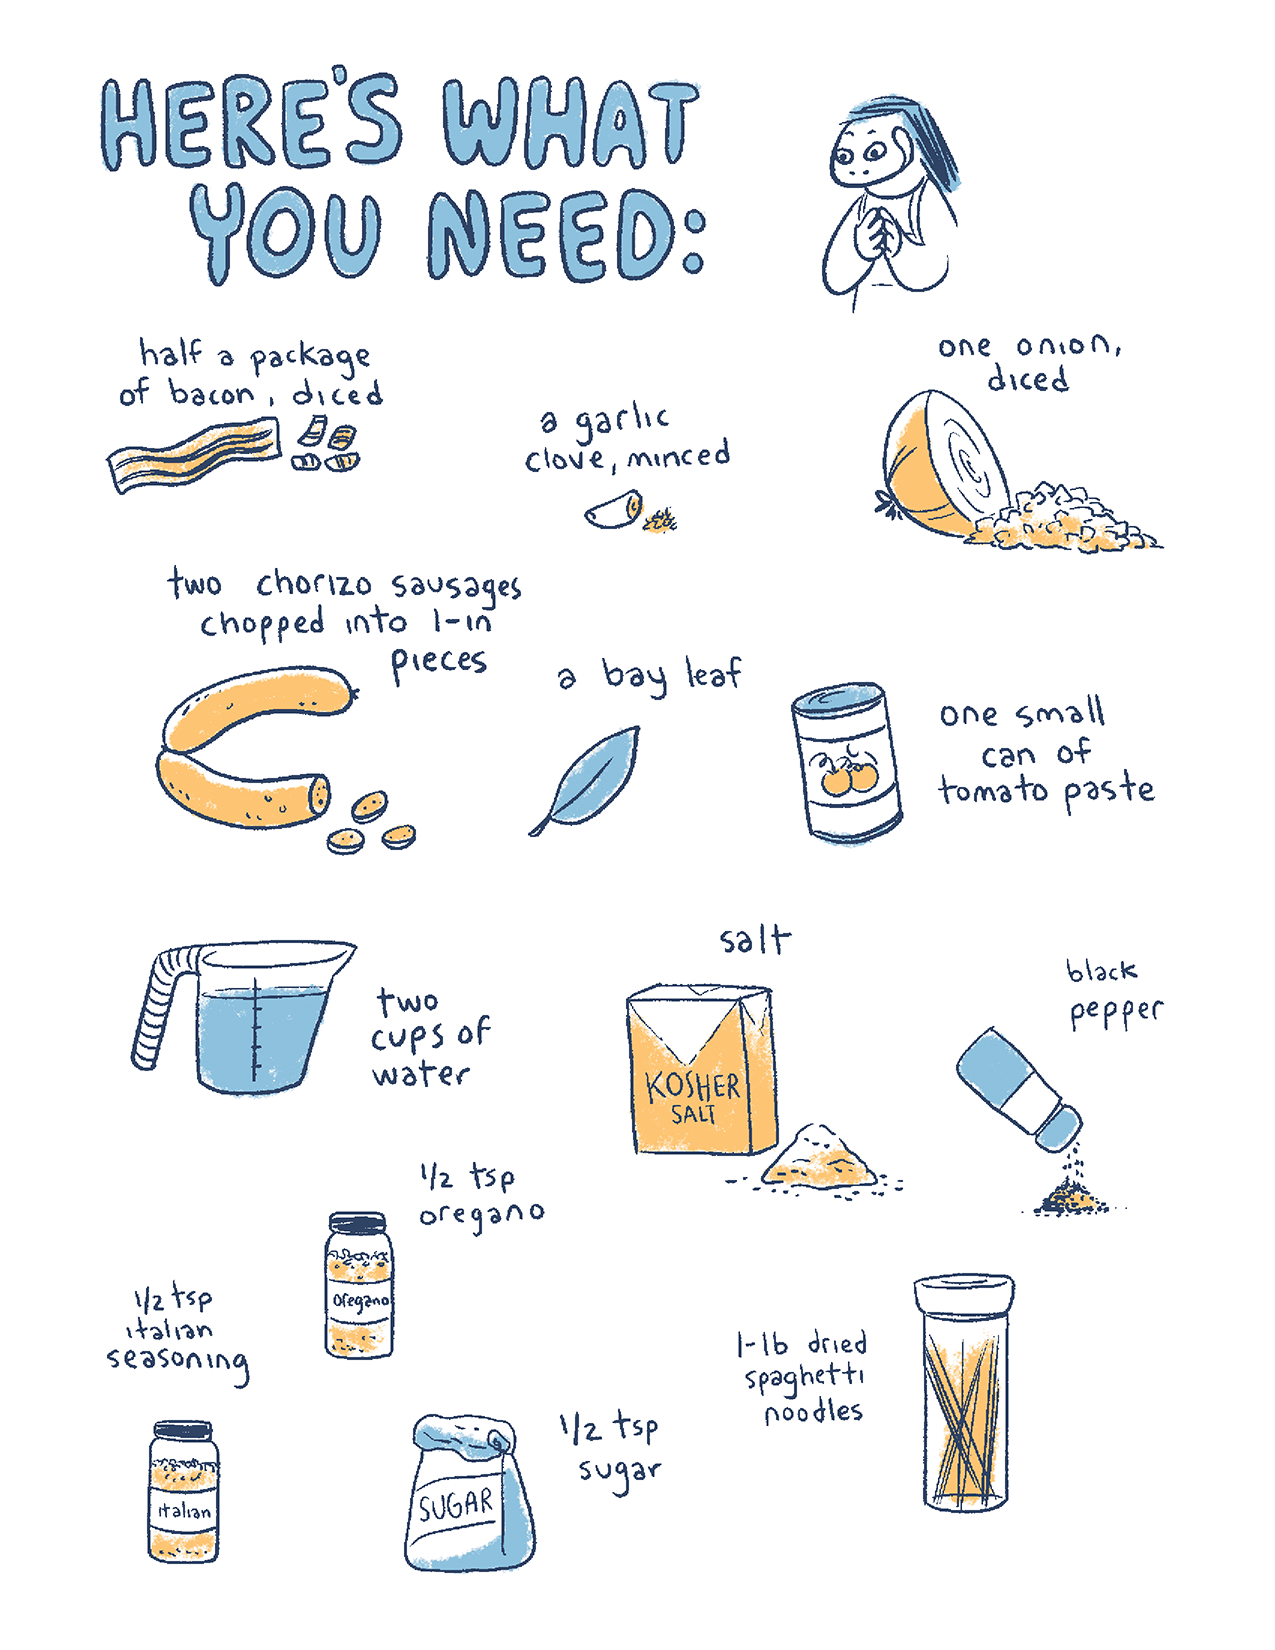 HERE'S WHAT
YOU NEED:
half a package
of bacon, diced
a garlic
clove, minced
one onion,
diced
two chorizo sausages
chopped into 1-in
pieces
a bay leaf
one small
can of
tomato paste
two
cups of
water
salt
KOSHER
SALT
black
pepper
1/2 tsp
oregano
oregano
1/2 tsp
italian
seasoning
italian
SUGAR
1/2 tsp
sugar
1-lb dried
spaghetti
noodles